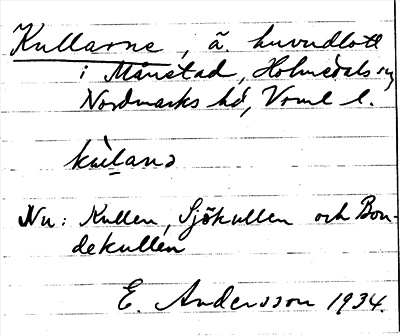 Kullarne, ä. huvudlott
i Månstad, Holmedals sn
Nordmarks hd, Vrml l.
Nu: Kullen, Sjökullen och Bon-
dekullen
E. Andersson 1934.